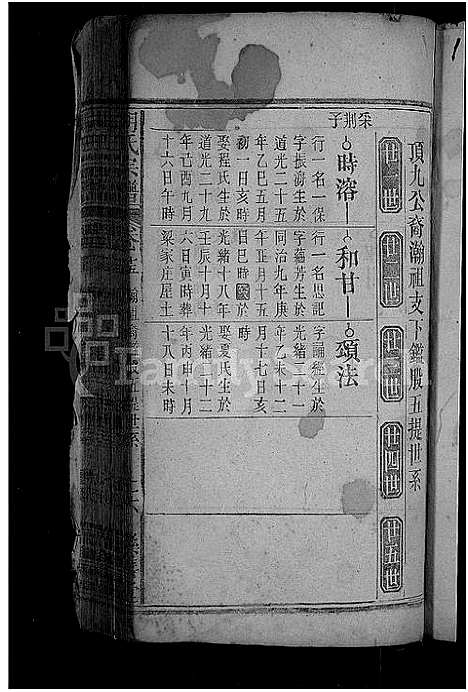 頂九公裔瀚祖支下鑑股五提世系
廿一世
廿二世
廿三世
廿四世
廿五世
采荆子
時溶
行一名一保
字振澍生於
道光二十五
年乙巳五月
初一日亥時
娶程氏生於
道光二十九
年己酉九月
十六日午時
和甘
行一名思記
字蘊芳生於
同治九年庚
年正月十五
日巳時歿於
光緒十八年
壬辰十月十
六日寅時葬
梁家庄屋土
頌法
字誦經生於
光緒二十一
年乙未十二
月十七日亥
時
娶夏氏生於
光緒二十二
年丙申十月
十八日未時
氏宗譜